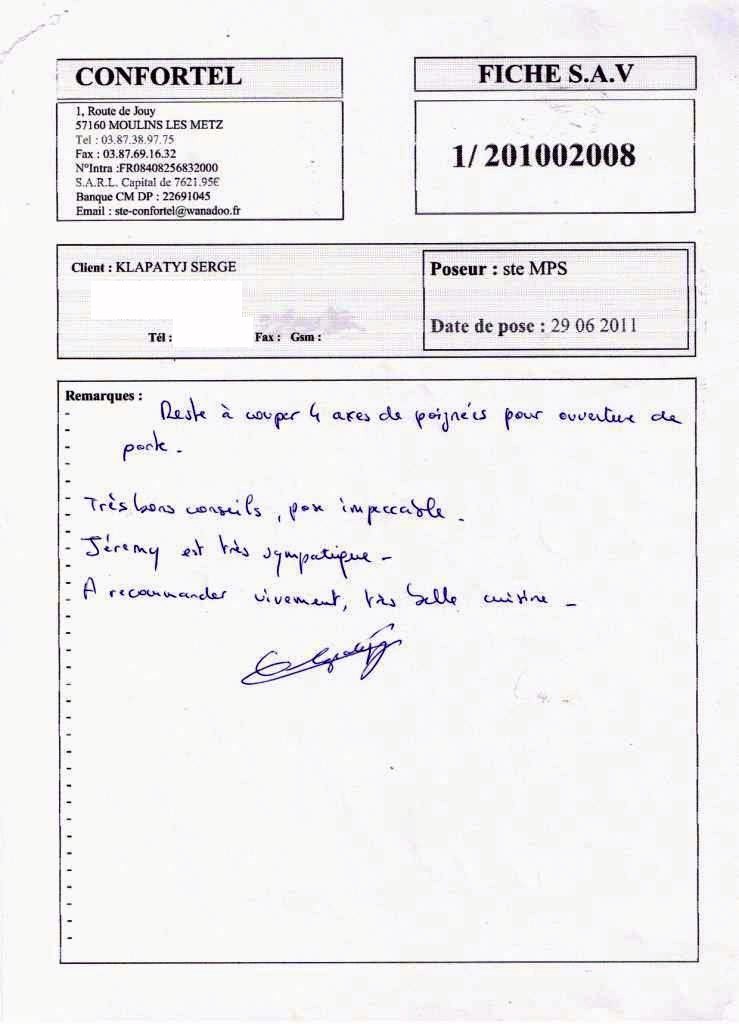 CONFORTEL
1, Route de Jouy
57160 MOULINS LES METZ
Tel : 03.87.38.97.75
Fax : 03.87.69.16.32
N°Intra :FR08408256832000
S.A.R.L. Capital de 7621.95€
Banque CM DP : 22691045
Email : ste-confortel@wanadoo.fr
FICHE S.A.V
1/ 201002008
Client : KLAPATYJ SERGE
Tél :
Fax : Gsm :
Poseur : ste MPS
Date de pose : 29 06 2011
Remarques :
Reste à couper 4 axes de poignées pour ouverture de
porte.
Très bons conseils, pose impeccable.
Jéremy est très sympatique -
A recommander vivement, très belle cuisine -